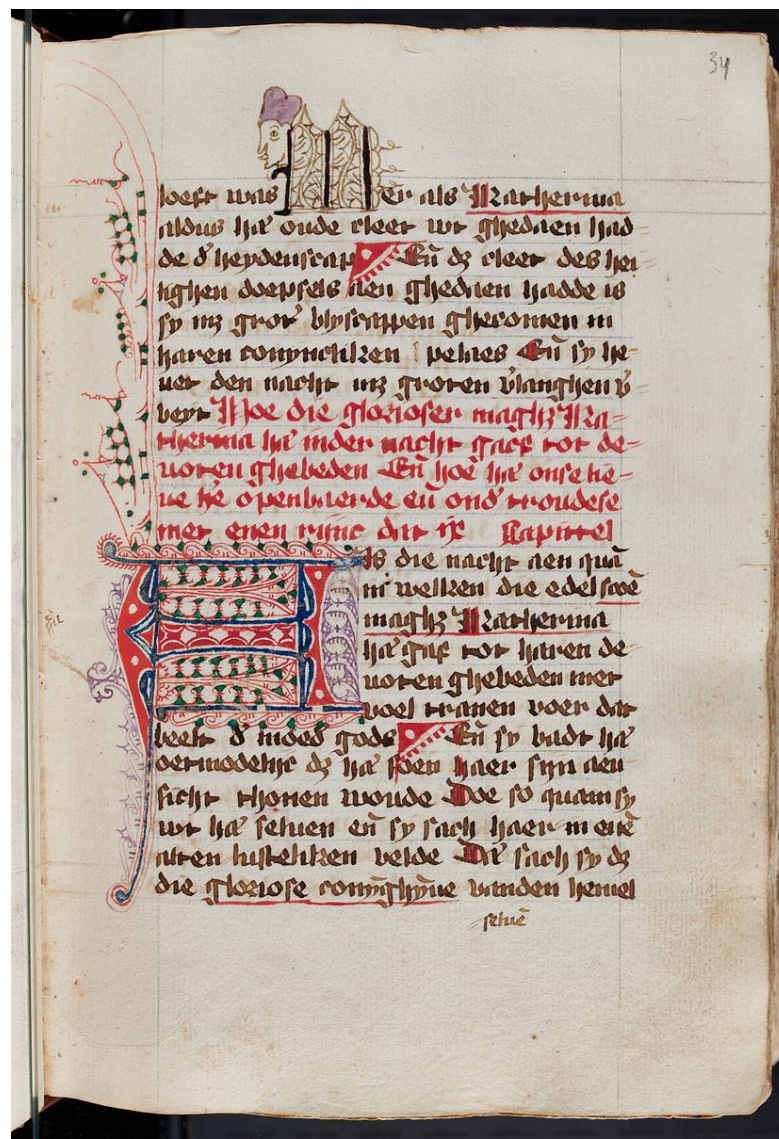 34
loeft was Mer als Katherina
aldus hā oude cleet wt ghedaen had
de d̄ heydenscap Eñ dʒ cleet des hei
lighen doepsels aen ghedaen hadde is
sy mʒ grot̄ blyscappen ghecomen in
haren conyncliken pelaes Eñ sy he-
uet den nacht mʒ groten v̄langhen v̄
beyt Hoe die glorioser maghʒ Ka-
therina hā inder nacht gaef tot de-
uoten ghebeden Eñ hoe hā onse lie-
ue hē openbaerde eñ ond̄troudese
met enen rinc dat ix Capittel
Als die nacht aen quā
in welken die edel
maghʒ Katherina
hā gaf tot haren de-
uoten ghebeden met
voel tranen voer dat
beelt d̄ moed̄ gods Eñ sy badt hā
oetmodelijc dʒ hā soen haer sijn aen
sicht thonen woude Doe so quam sy
wt hā seluen eñ sy sach haer in enē
alten lusteliken velde Dā sach sy dʒ
die gloriose conyn̄ghyn̄e vanden hemel
seluē